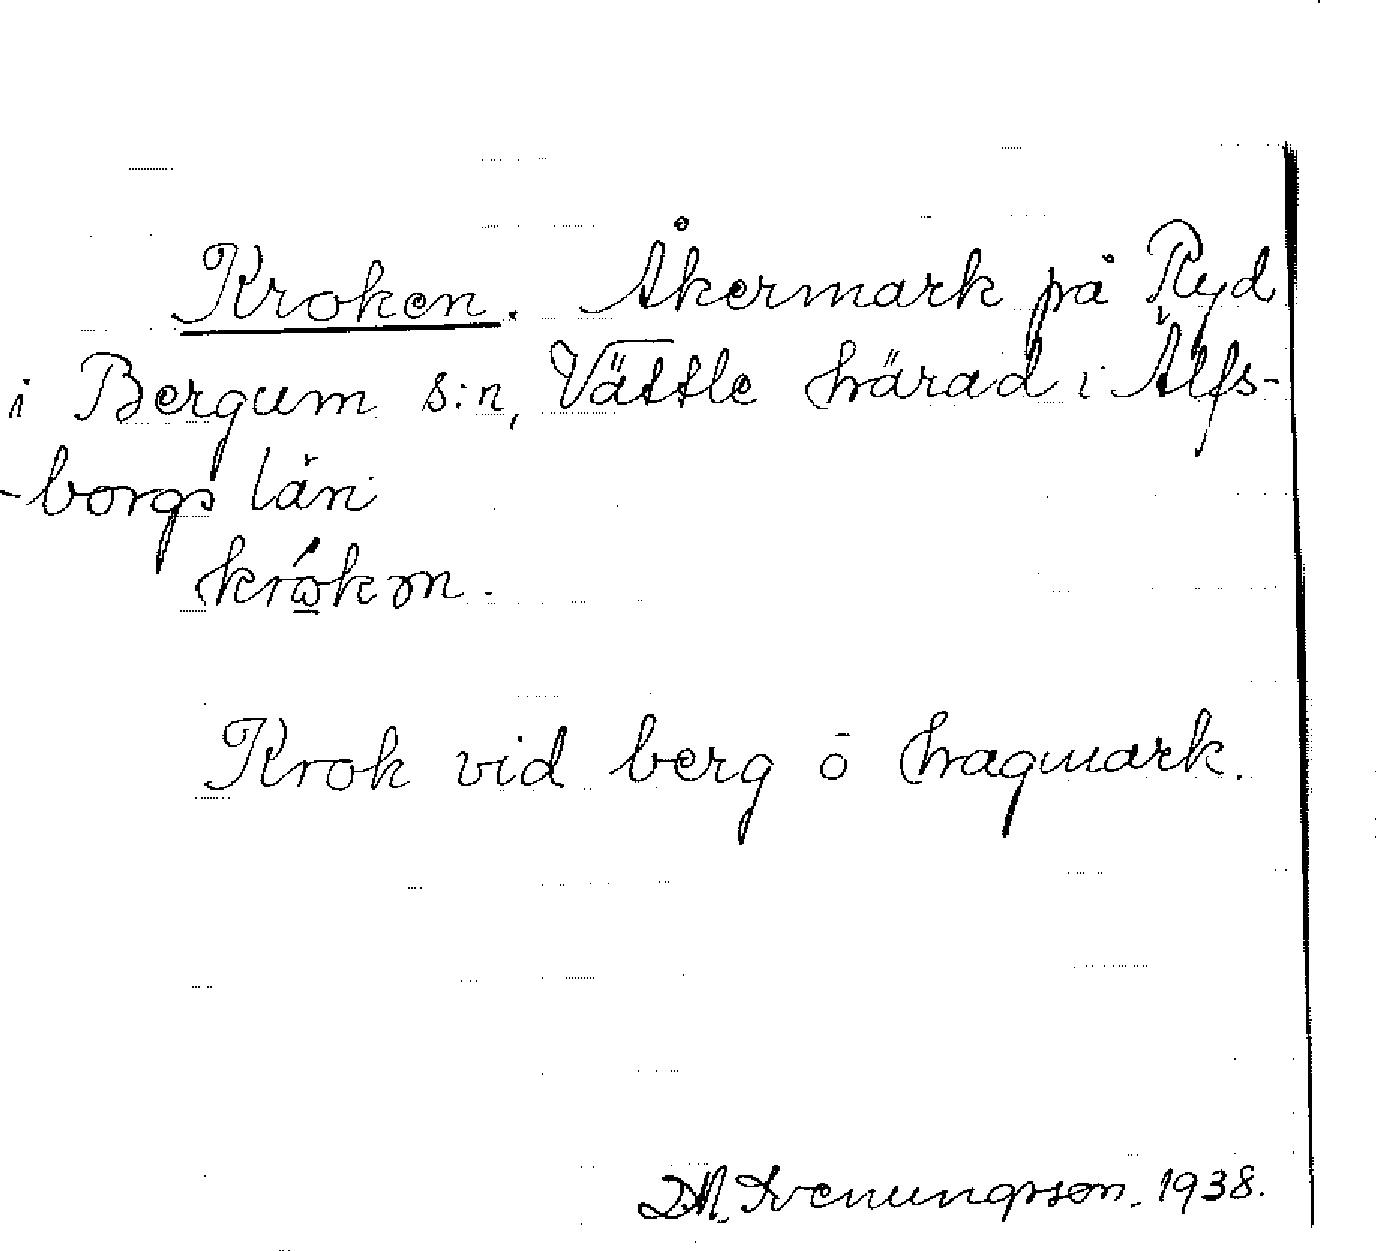 Kroken. Åkermark på Ryd
i Bergum s:n, Vättle härad i Älfs-
-borgs län
krώ̲kən.
Krok vid berg ō hagmark.
D.A. Svenungsson. 1938.